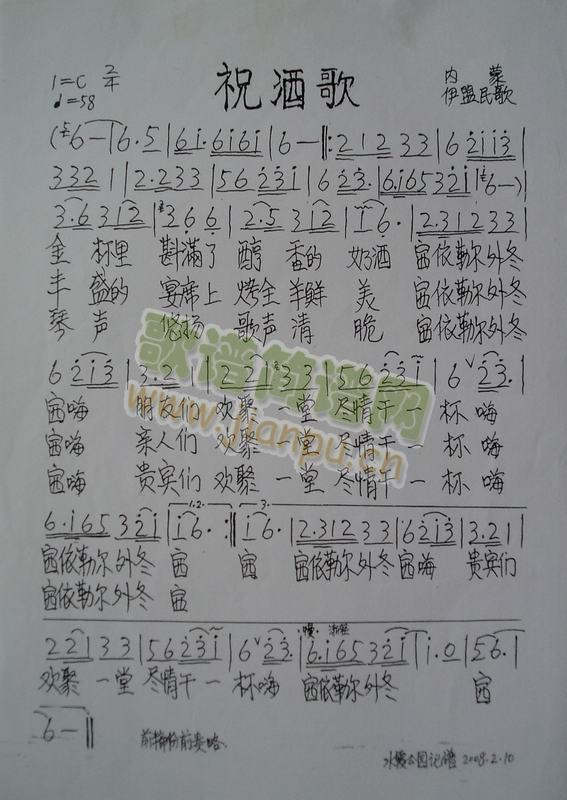 1=C 2/4
♩=58
祝酒歌
内蒙
伊盟民歌
(6—|6·5|6i·6i6i|6—‖:2123 3|6 2ii3|
3321|2·233|56 2·3i|623·|6·i65 32i|6—)
3·6 3i2|3 6 6|2·5 3i2|i6·|2·312 33|
金杯里 斟满了 醇香的 奶酒 㕷依勒尔外冬
丰盛的 宴席上 烤全羊鲜美 㕷依勒尔外冬
琴声 悠扬 歌声清脆 㕷依勒尔外冬
歌谱简谱网
www.jianpu.cn
6 2i3|3·21|22i33|56 23i|6ˇ23·|
㕷嗨 朋友们 欢聚一堂 尽情干一杯嗨
㕷嗨 亲人们 欢聚一堂 尽情干一杯嗨
㕷嗨 贵宾们 欢聚一堂 尽情干一杯嗨
6·i65 32i|1.2. i6·:‖3. i6·|2·312 33|6 2i3|3·21|
㕷依勒尔外冬 㕷 㕷 㕷依勒尔外冬 㕷嗨 贵宾们
㕷依勒尔外冬 㕷
22i33|56 23i|6ˇ23·|6·i65 32i|i·0|56·|
欢聚一堂 尽情干一杯嗨 㕷依勒尔外冬 㕷
6—‖
水 公园记谱 2008.2.10